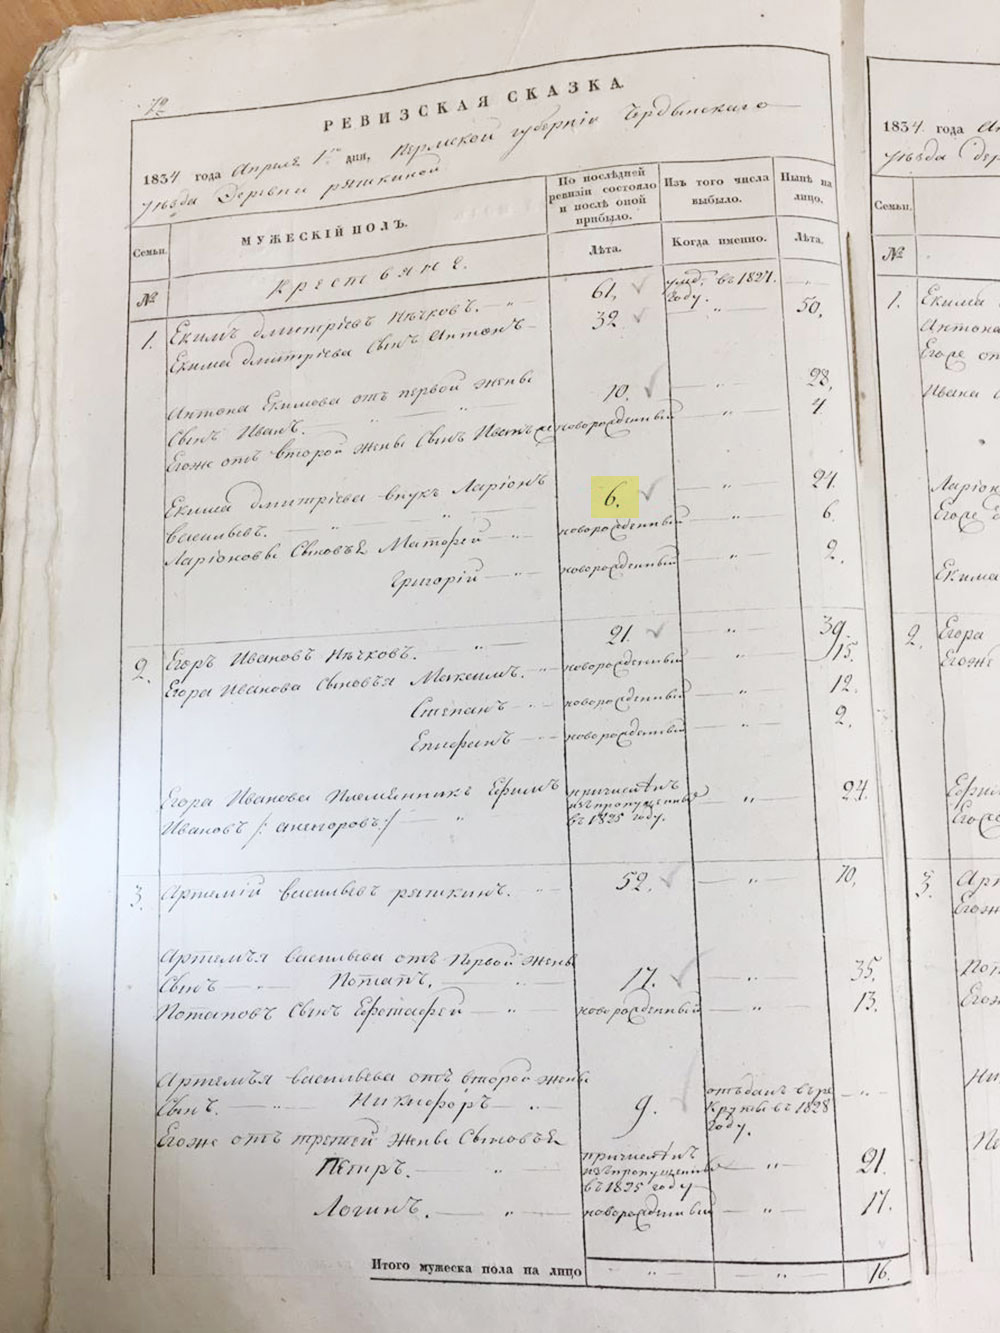 72
РЕВИЗСКАЯ СКАЗКА
1834 года Апреля 1го дня, Пермской губернiи Чердынскаго
уѣзда Деревни ряшкиной
Семьи.
МУЖЕСКIЙ ПОЛЪ.
По послѣдней ревизiи состояло и послѣ оной прибыло.
Изъ того числа выбыло.
Нынѣ на лицо.
№
Крестьяне.
Лѣта.
Когда именно.
Лѣта.
1. Екимъ дмитрiевъ Нѣчковъ. 61. умд. въ 1827. году.
Екима дмитрiева Сынъ Антонъ 32 50.
Антона Екимова отъ первой жены
Сынъ Иванъ. 10. 28.
Егоже отъ второй жены Сынъ Иванъ новорожденный 4
Екима дмитрiева внукъ Ларiонъ 6. 24.
васильевъ.
Ларiоновы Сыновья Матфей новорожденный 6.
Григорiй новорожденный 2.
2. Егоръ Ивановъ Нѣчковъ. 21. 39.
Егора Иванова Сыновья Максимъ. новорожденный 15.
Степанъ новорожденный 12.
Епифанъ новорожденный 2.
Егора Иванова Племянникъ Ефимъ причисленъ 24.
Ивановъ изъ пропущенныхъ
въ 1825 году.
3. Артемiй васильевъ ряшкинъ. 52. 70.
Артемья васильева отъ Первой жены
Сынъ Потапъ. 17. 35.
Потаповъ Сынъ новорожденный 13.
Артемья васильева отъ второй жены
Сынъ. Никифоръ 9. отъданъ въ ре
круты въ 1828
году.
Егоже отъ третей жены Сыновья
Петръ. причисленъ изъ пропущеныхъ въ 1825 году 21.
Логинъ. новорожденный 17.
Итого мужеска пола на лицо 16.
1834 года
уѣзда дер
Семьи.
№
1. Екима
Антона
Егоже от
Ивана
Ларiон
Екима
2. Егора
Егоже
3. Арт
Егоже
Пот
Ни
Пе